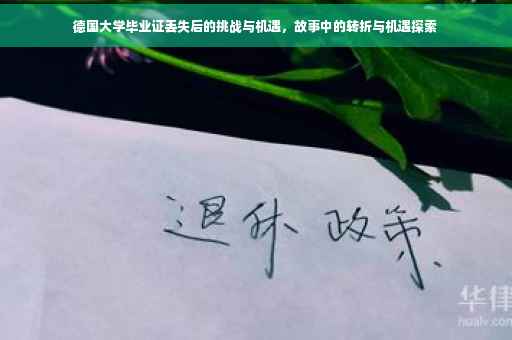 德国大学毕业证丢失后的挑战与机遇，故事中的转折与机遇探索
退休 政策
华律
hualv.com